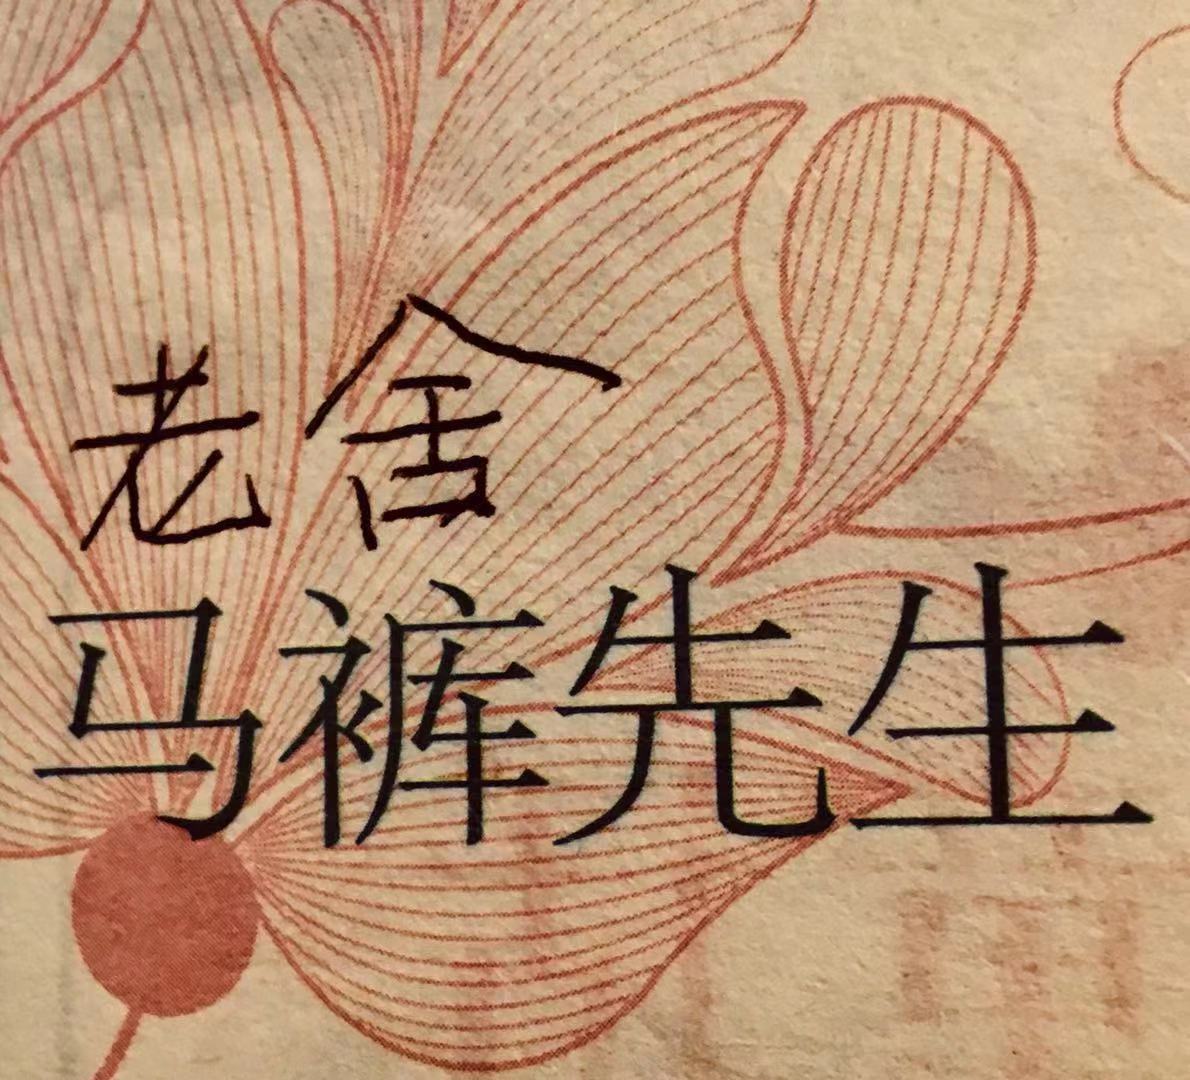 老舍
马裤先生